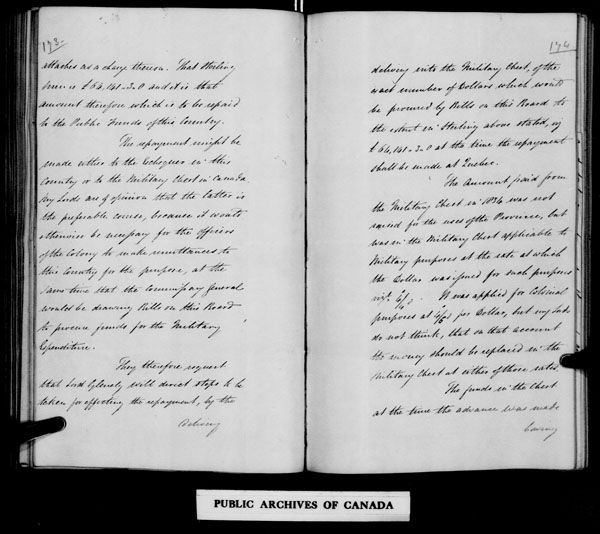 173.
attaches as a charge thereon. That Sterling
sum is £64,141-2-0 and it is that
amount therefore which is to be repaid
to the Public Funds of this Country.
The repayment might be
made either to the Exchequer in this
Country or to the Military Chest in Canada.
My Lords are of opinion that the latter is
the preferable course, because it would
otherwise be necessary for the officers
of the Colony to make remittances to
this Country for the purpose, at the
same time that the Commissary General
would be drawing Bills on this Board
to procure funds for the Military
Expenditure.
They therefore request
that Lord Glenelg will direct steps to be
taken for effecting the repayment, by the
delivery
174
delivery into the Military Chest, of the
exact number of Dollars which would
be procured by Bills on this Board to
the extent in Sterling above stated, viz
£64,141-2-0 at the time the repayment
shall be made at Quebec.
The amount paid from
the Military Chest in 1834 was not
raised for the uses of the Province, but
was in the Military Chest applicable to
Military purposes at the rate at which
the Dollar was issued for such purposes
viz. 4/4 d. It was applied for Colonial
purposes at 4/6d per Dollar, but my Lords
do not think, that on that account
the money should be replaced in the
Military Chest at either of those rates.
The funds in the Chest
at the time the advance was made
having
PUBLIC ARCHIVES OF CANADA